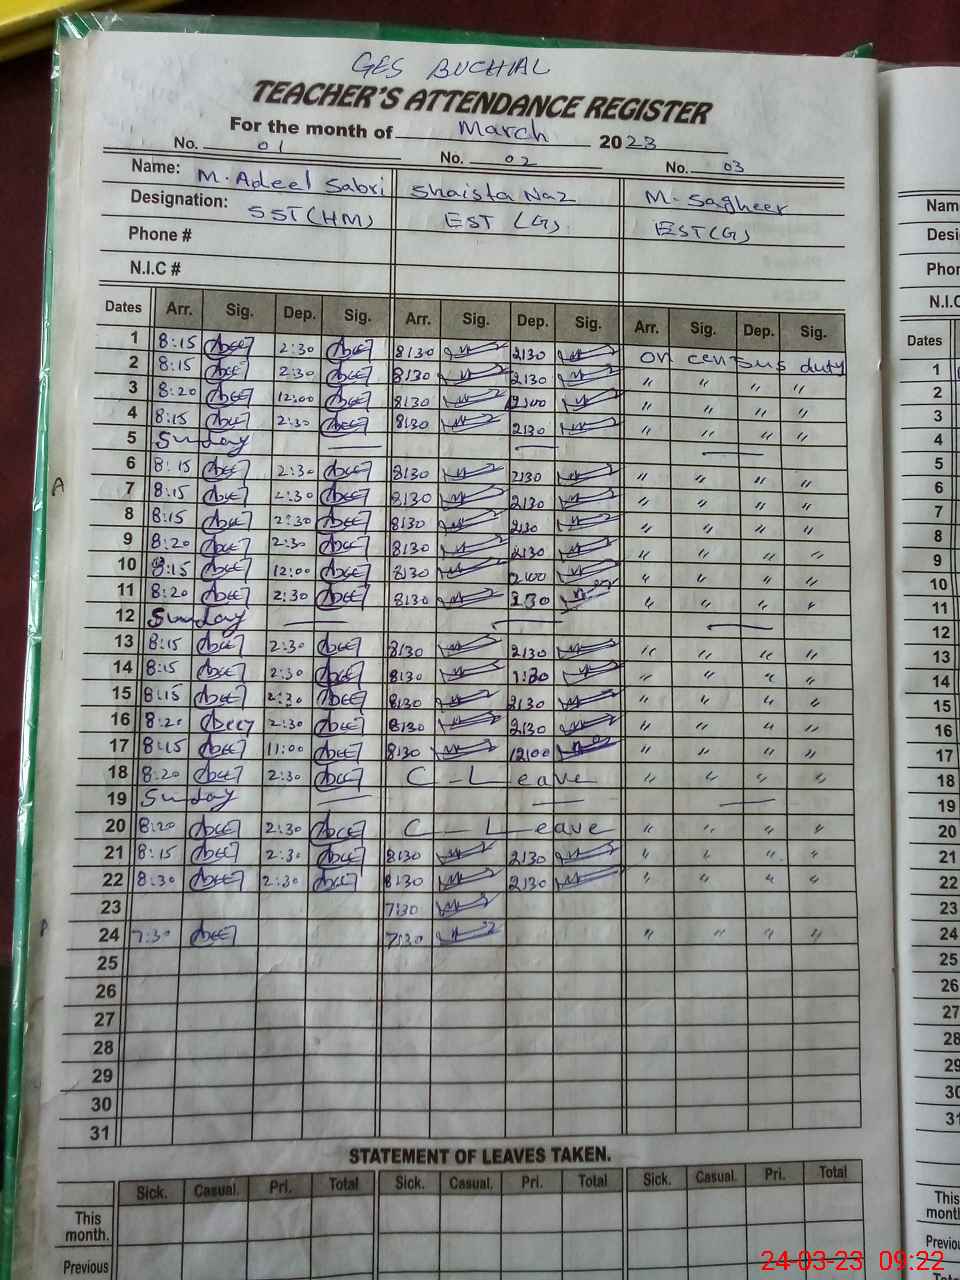 GES BUCHIAL
TEACHER'S ATTENDANCE REGISTER
For the month of March 2023
No. 01 No. 02 No. 03
Name: M. Adeel Sabri Shaista Naz M. Sagheer
Designation: SST (HM) EST (G) EST (G)
Phone #
N.I.C #
Dates Arr. Sig. Dep. Sig. Arr. Sig. Dep. Sig. Arr. Sig. Dep. Sig.
1 8:15 2:30 8:30 2:30 on census duty
2 8:15 2:30 8:30 2:30 " " " "
3 8:20 12:00 8:30 12:00 " " " "
4 8:15 2:30 8:30 2:30 " " " "
5 Sunday
6 8:15 2:30 8:30 2:30 " " " "
7 8:15 2:30 8:30 2:30 " " " "
8 8:15 2:30 8:30 2:30 " " " "
9 8:20 2:30 8:30 2:30 " " " "
10 8:15 12:00 8:30 " " " "
11 8:20 2:30 8:30 " " " "
12 Sunday
13 8:15 2:30 8:30 2:30 " " " "
14 8:15 2:30 8:30 " " " "
15 8:15 2:30 8:30 2:30 " " " "
16 8:20 2:30 8:30 2:30 " " " "
17 8:15 11:00 8:30 12:00 " " " "
18 8:20 2:30 C - Leave " " " "
19 Sunday
20 8:20 2:30 C - Leave " " " "
21 8:15 2:30 8:30 2:30 " " " "
22 8:30 2:30 8:30 2:30 " " " "
23 7:30
24 7:30 7:30 " " " "
25
26
27
28
29
30
31
STATEMENT OF LEAVES TAKEN.
Sick. Casual. Pri. Total Sick. Casual. Pri. Total Sick. Casual. Pri. Total
This month.
Previous
A
Nam
Desi
Phor
N.I.C
Dates
1
2
3
4
5
6
7
8
9
10
11
12
13
14
15
16
17
18
19
20
21
22
23
24
25
26
27
28
29
30
31
This
mont
Previo
24-03-23 09:22